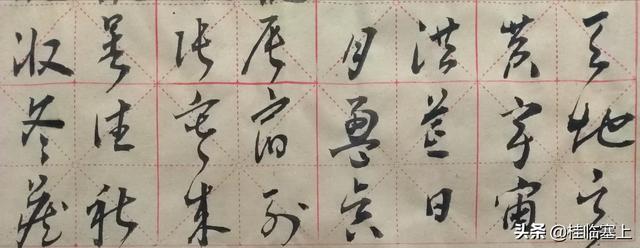 天地玄
黄宇宙
洪荒日
月盈昃
辰宿列
张寒来
暑往秋
收冬藏
头条 @桂临塞上